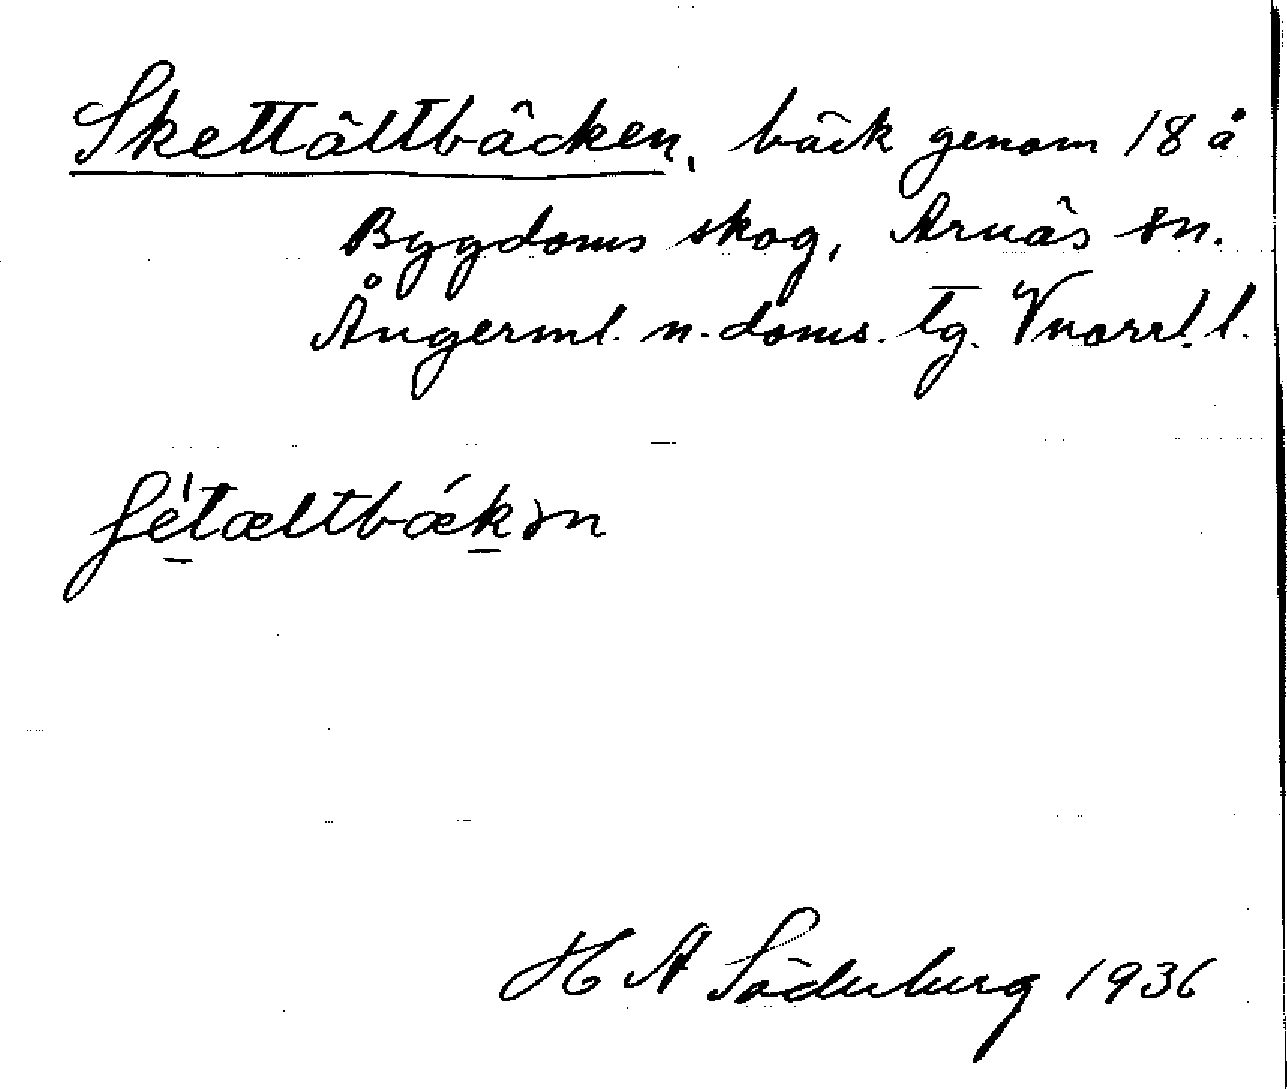 Skettältbäcken, bäck genom 18 å
Bygdoms skog, Arnäs sn.
Ångerml. n. doms. tg. Vnorrl. l.
ʃètæltbǽkən
H A Söderberg 1936